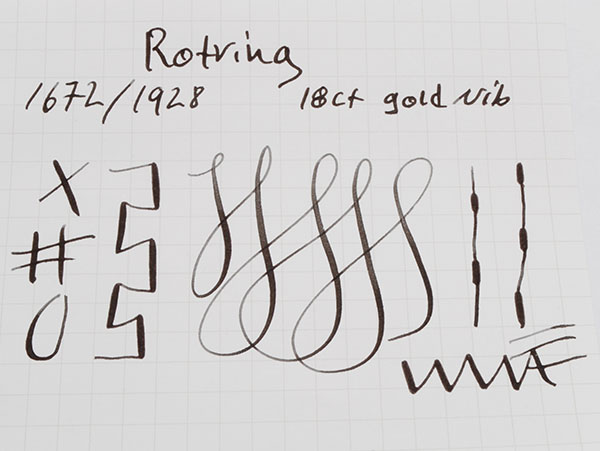 Rotring
1672/1928 18ct gold nib
X
#
O